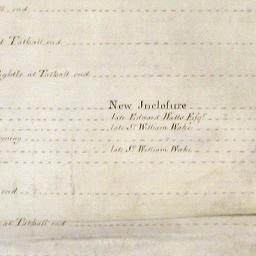 end
at Tathall end
at Tathall end
New Inclosure
late Edward Watts Esqr.
late Sr. William Wake
late Sr. William Wake
end
at Tathall end